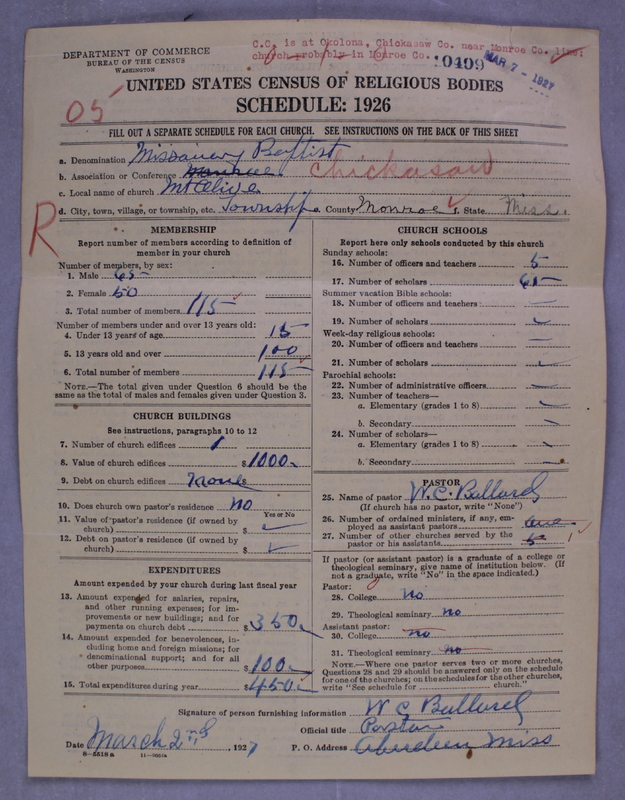 C.O. is at Okolona, Chickasaw Co. near Monroe Co. line;
church probably in Monroe Co.
DEPARTMENT OF COMMERCE
BUREAU OF THE CENSUS
WASHINGTON
10409
MAR 7 - 1927
UNITED STATES CENSUS OF RELIGIOUS BODIES
SCHEDULE: 1926
05
FILL OUT A SEPARATE SCHEDULE FOR EACH CHURCH. SEE INSTRUCTIONS ON THE BACK OF THIS SHEET
a. Denomination Missionary Baptist
b. Association or Conference Monroe Chickasaw
c. Local name of church Mt Olive
d. City, town, village, or township, etc. Township County Monroe f. State Miss.
R
MEMBERSHIP
Report number of members according to definition of
member in your church
Number of members, by sex:
1. Male 65
2. Female 50
3. Total number of members 115
Number of members under and over 13 years old:
4. Under 13 years of age 15
5. 13 years old and over 100
6. Total number of members 115
NOTE.—The total given under Question 6 should be
same as the total of males and females given under Question 3.
CHURCH BUILDINGS
See instructions, paragraphs 10 to 12
7. Number of church edifices 1
8. Value of church edifices $1000
9. Debt on church edifices None
10. Does church own pastor's residence? No
Yes or No
11. Value of pastor's residence (if owned by
church) $
12. Debt on pastor's residence (if owned by
church) $
EXPENDITURES
Amount expended by your church during last fiscal year
13. Amount expended for salaries, repairs,
and other running expenses; for im-
provements or new buildings; and for
payments on church debt $350
14. Amount expended for benevolences, in-
cluding home and foreign missions; for
denominational support; and for all
other purposes $100
15. Total expenditures during year $450
CHURCH SCHOOLS
Report here only schools conducted by this church
Sunday schools:
16. Number of officers and teachers 5
17. Number of scholars 65
Summer vacation Bible schools:
18. Number of officers and teachers —
19. Number of scholars
Week-day religious schools:
20. Number of officers and teachers —
21. Number of scholars
Parochial schools:
22. Number of administrative officers
23. Number of teachers—
a. Elementary (grades 1 to 8)
b. Secondary
24. Number of scholars—
a. Elementary (grades 1 to 8)
b. Secondary
PASTOR
25. Name of pastor W. C. Bullard
(If church has no pastor, write "None")
26. Number of ordained ministers, if any, em-
ployed as assistant pastors one
27. Number of other churches served by the
pastor or his assistants 1
If pastor (or assistant pastor) is a graduate of a college or
theological seminary, give name of institution below. (If
not a graduate, write "No" in the space indicated.)
Pastor:
28. College no
29. Theological seminary no
Assistant pastor:
30. College no
31. Theological seminary no
NOTE.—Where one pastor serves two or more churches,
Questions 28 and 29 should be answered only on the schedule
for one of the churches; on the schedules for the other churches,
write "See schedule for church."
Signature of person furnishing information W C Bullard
Official title Pastor
Date March 2nd, 1927 P. O. Address Aberdeen Miss
8-5518a